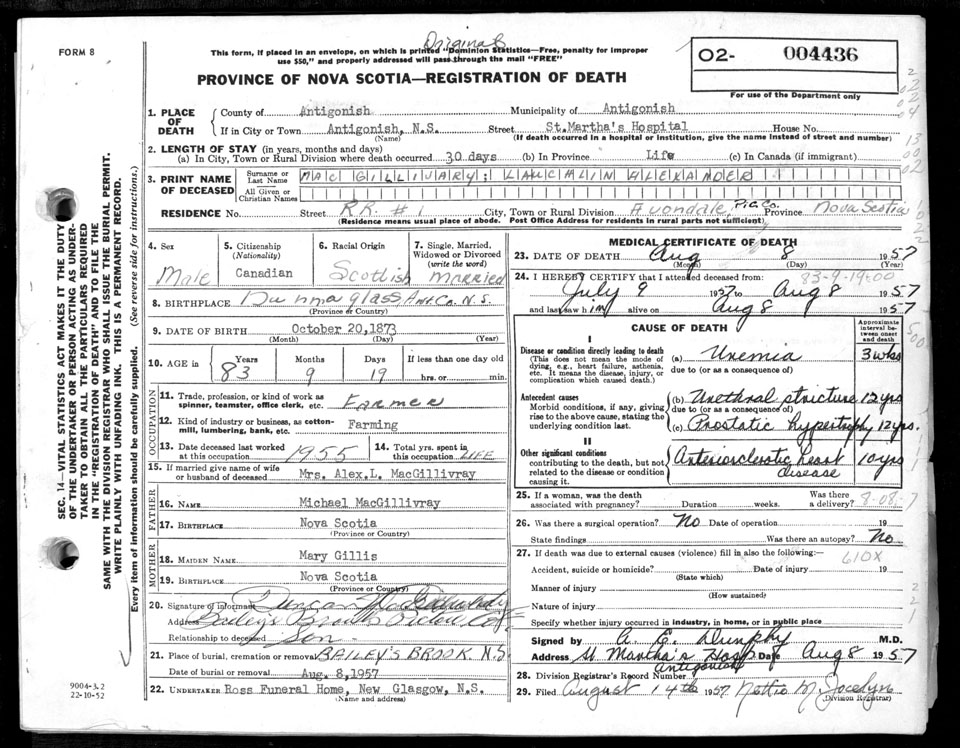 FORM 8
Original
This form, if placed in an envelope, on which is printed "Dominion Statistics—Free, penalty for improper
use $50," and properly addressed will pass through the mail "FREE"
PROVINCE OF NOVA SCOTIA—REGISTRATION OF DEATH
02- 004436
For use of the Department only
SEC. 14—VITAL STATISTICS ACT MAKES IT THE DUTY
OF THE UNDERTAKER OR PERSON ACTING AS UNDER-
TAKER TO OBTAIN ALL THE PARTICULARS REQUIRED
IN THE "REGISTRATION OF DEATH" AND TO FILE THE
SAME WITH THE DIVISION REGISTRAR WHO SHALL ISSUE THE BURIAL PERMIT.
WRITE PLAINLY WITH UNFADING INK. THIS IS A PERMANENT RECORD.
Every item of information should be carefully supplied. (See reverse side for instructions.)
1. PLACE OF DEATH
County of Antigonish Municipality of Antigonish
If in City or Town Antigonish, N.S. Street St.Martha's Hospital House No.
(Name) (If death occurred in a hospital or institution, give the name instead of street and number)
2. LENGTH OF STAY (in years, months and days)
(a) In City, Town or Rural Division where death occurred 30 days (b) In Province Life (c) In Canada (if immigrant)
3. PRINT NAME OF DECEASED
Surname or Last Name MAC GILLIVARY; LAUCHLIN ALEXANDER
All Given or Christian Names
RESIDENCE No. Street R.R. #1 City, Town or Rural Division Avondale, Pic Co. Province Nova Scotia
(Residence means usual place of abode. Post Office Address for residents in rural parts not sufficient)
4. Sex Male
5. Citizenship (Nationality) Canadian
6. Racial Origin Scotlish
7. Single, Married, Widowed or Divorced (write the word) Married
8. BIRTHPLACE Dunmaglass Ant Co. N.S.
(Province or Country)
9. DATE OF BIRTH October 20,1873
(Month) (Day) (Year)
10. AGE in Years 83 Months 9 Days 19 If less than one day old hrs. or min.
OCCUPATION
11. Trade, profession, or kind of work as spinner, teamster, office clerk, etc. Farmer
12. Kind of industry or business, as cotton-mill, lumbering, bank, etc. Farming
13. Date deceased last worked at this occupation 1955
14. Total yrs. spent in this occupation LIFE
15. If married give name of wife or husband of deceased Mrs. Alex.L. MacGillivray
FATHER
16. NAME Michael MacGillivray
17. BIRTHPLACE Nova Scotia
(Province or Country)
MOTHER
18. MAIDEN NAME Mary Gillis
19. BIRTHPLACE Nova Scotia
(Province or Country)
20. Signature of informant Duncan
Address Baileys Brook Pictou Co
Relationship to deceased Son
21. Place of burial, cremation or removal BAILEY'S BROOK. N.S.
Date of burial or removal Aug. 8,1957
22. UNDERTAKER Ross Funeral Home, New Glasgow, N.S.
(Name and address)
9004-3.2
22-10-52
MEDICAL CERTIFICATE OF DEATH
23. DATE OF DEATH Aug 8 1957
(Month) (Day) (Year)
83-9-19-00
24. I HEREBY CERTIFY that I attended deceased from:
July 9 1957 to Aug 8 1957
and last saw him alive on Aug 8 1957
CAUSE OF DEATH
Approximate interval between onset and death
I
Disease or condition directly leading to death
(This does not mean the mode of dying, e.g., heart failure, asthenia, etc. It means the disease, injury, or complication which caused death.)
(a) Uremia 3 wks
due to (or as a consequence of)
Antecedent causes
Morbid conditions, if any, giving rise to the above cause, stating the underlying condition last.
(b) Urethral stricture 12 yrs
due to (or as a consequence of)
(c) Prostatic hypertrophy 12 yrs.
II
Other significant conditions
contributing to the death, but not related to the disease or condition causing it.
Arteriosclerotic heart disease 10 yrs
25. If a woman, was the death associated with pregnancy? Duration weeks. Was there a delivery?
8-08-7
26. Was there a surgical operation? No Date of operation 19
State findings Was there an autopsy? No
27. If death was due to external causes (violence) fill in also the following:—
610X
Accident, suicide or homicide? Date of injury 19
(State which)
Manner of injury
(How sustained)
Nature of injury
Specify whether injury occurred in industry, in home, or in public place
Signed by A. E. Dunphy M.D.
Address St Martha's Hosp Date Aug 8 1957
Antigonish
28. Division Registrar's Record Number
29. Filed August 14th 1957 Nettie M. Jocelyn
(Division Registrar)